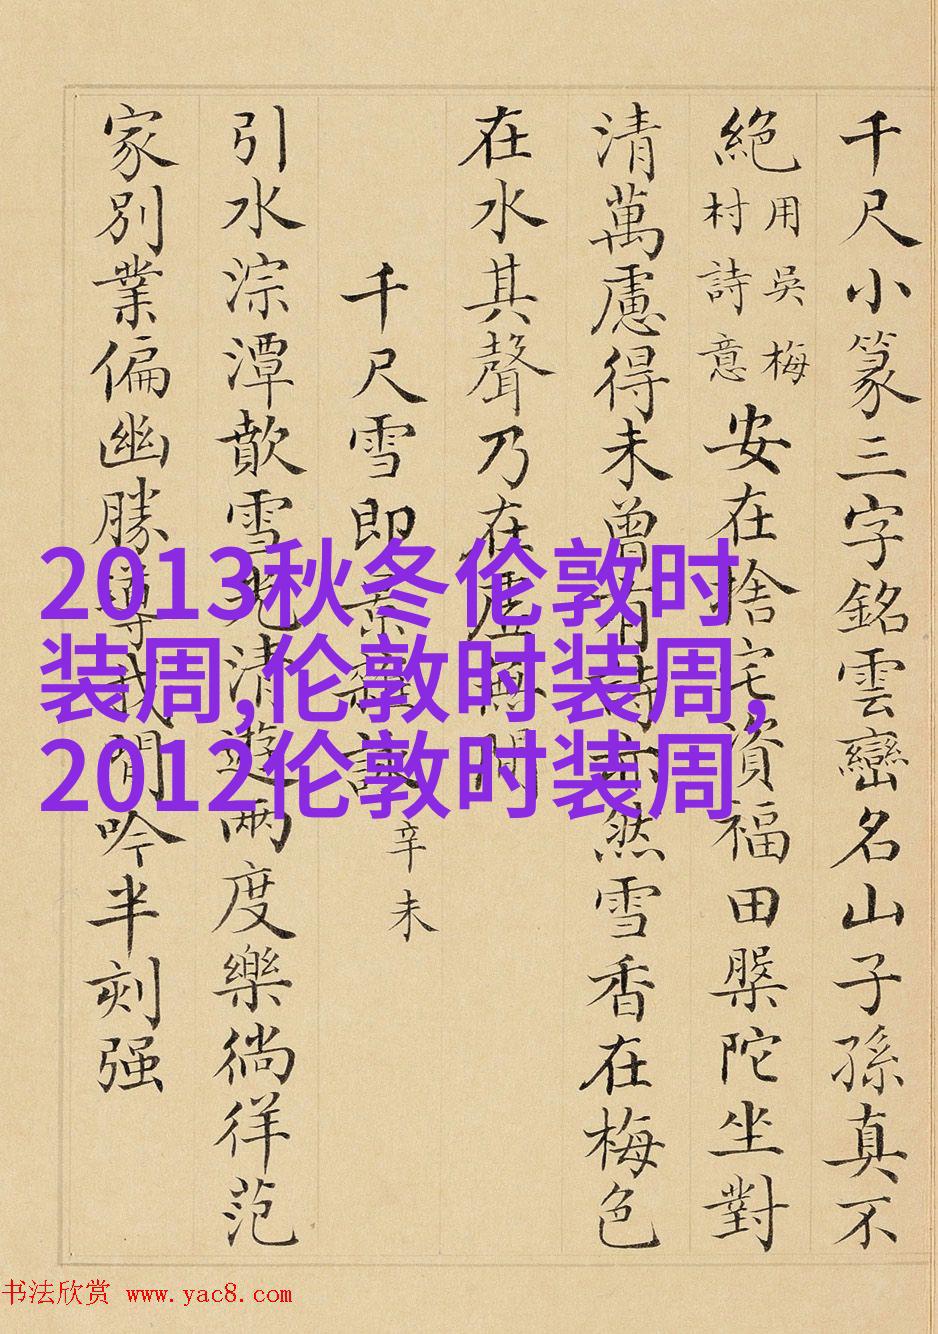 千尺小篆三字銘雲巒名山子孫真不
絕用吳梅村詩意安在捨宅資福田槃陀坐對
清萬慮得未曾有詩亦然雪香在梅色
在水其聲乃在虛無間
千尺雪即景雜詠辛未
引水淙潭歕雪光清遊兩度樂徜徉范
家別業偏幽勝導我閒吟半刻强
2013秋冬伦敦时
装周,伦敦时装周,
2012伦敦时装周
书法欣赏 www.yac8.com